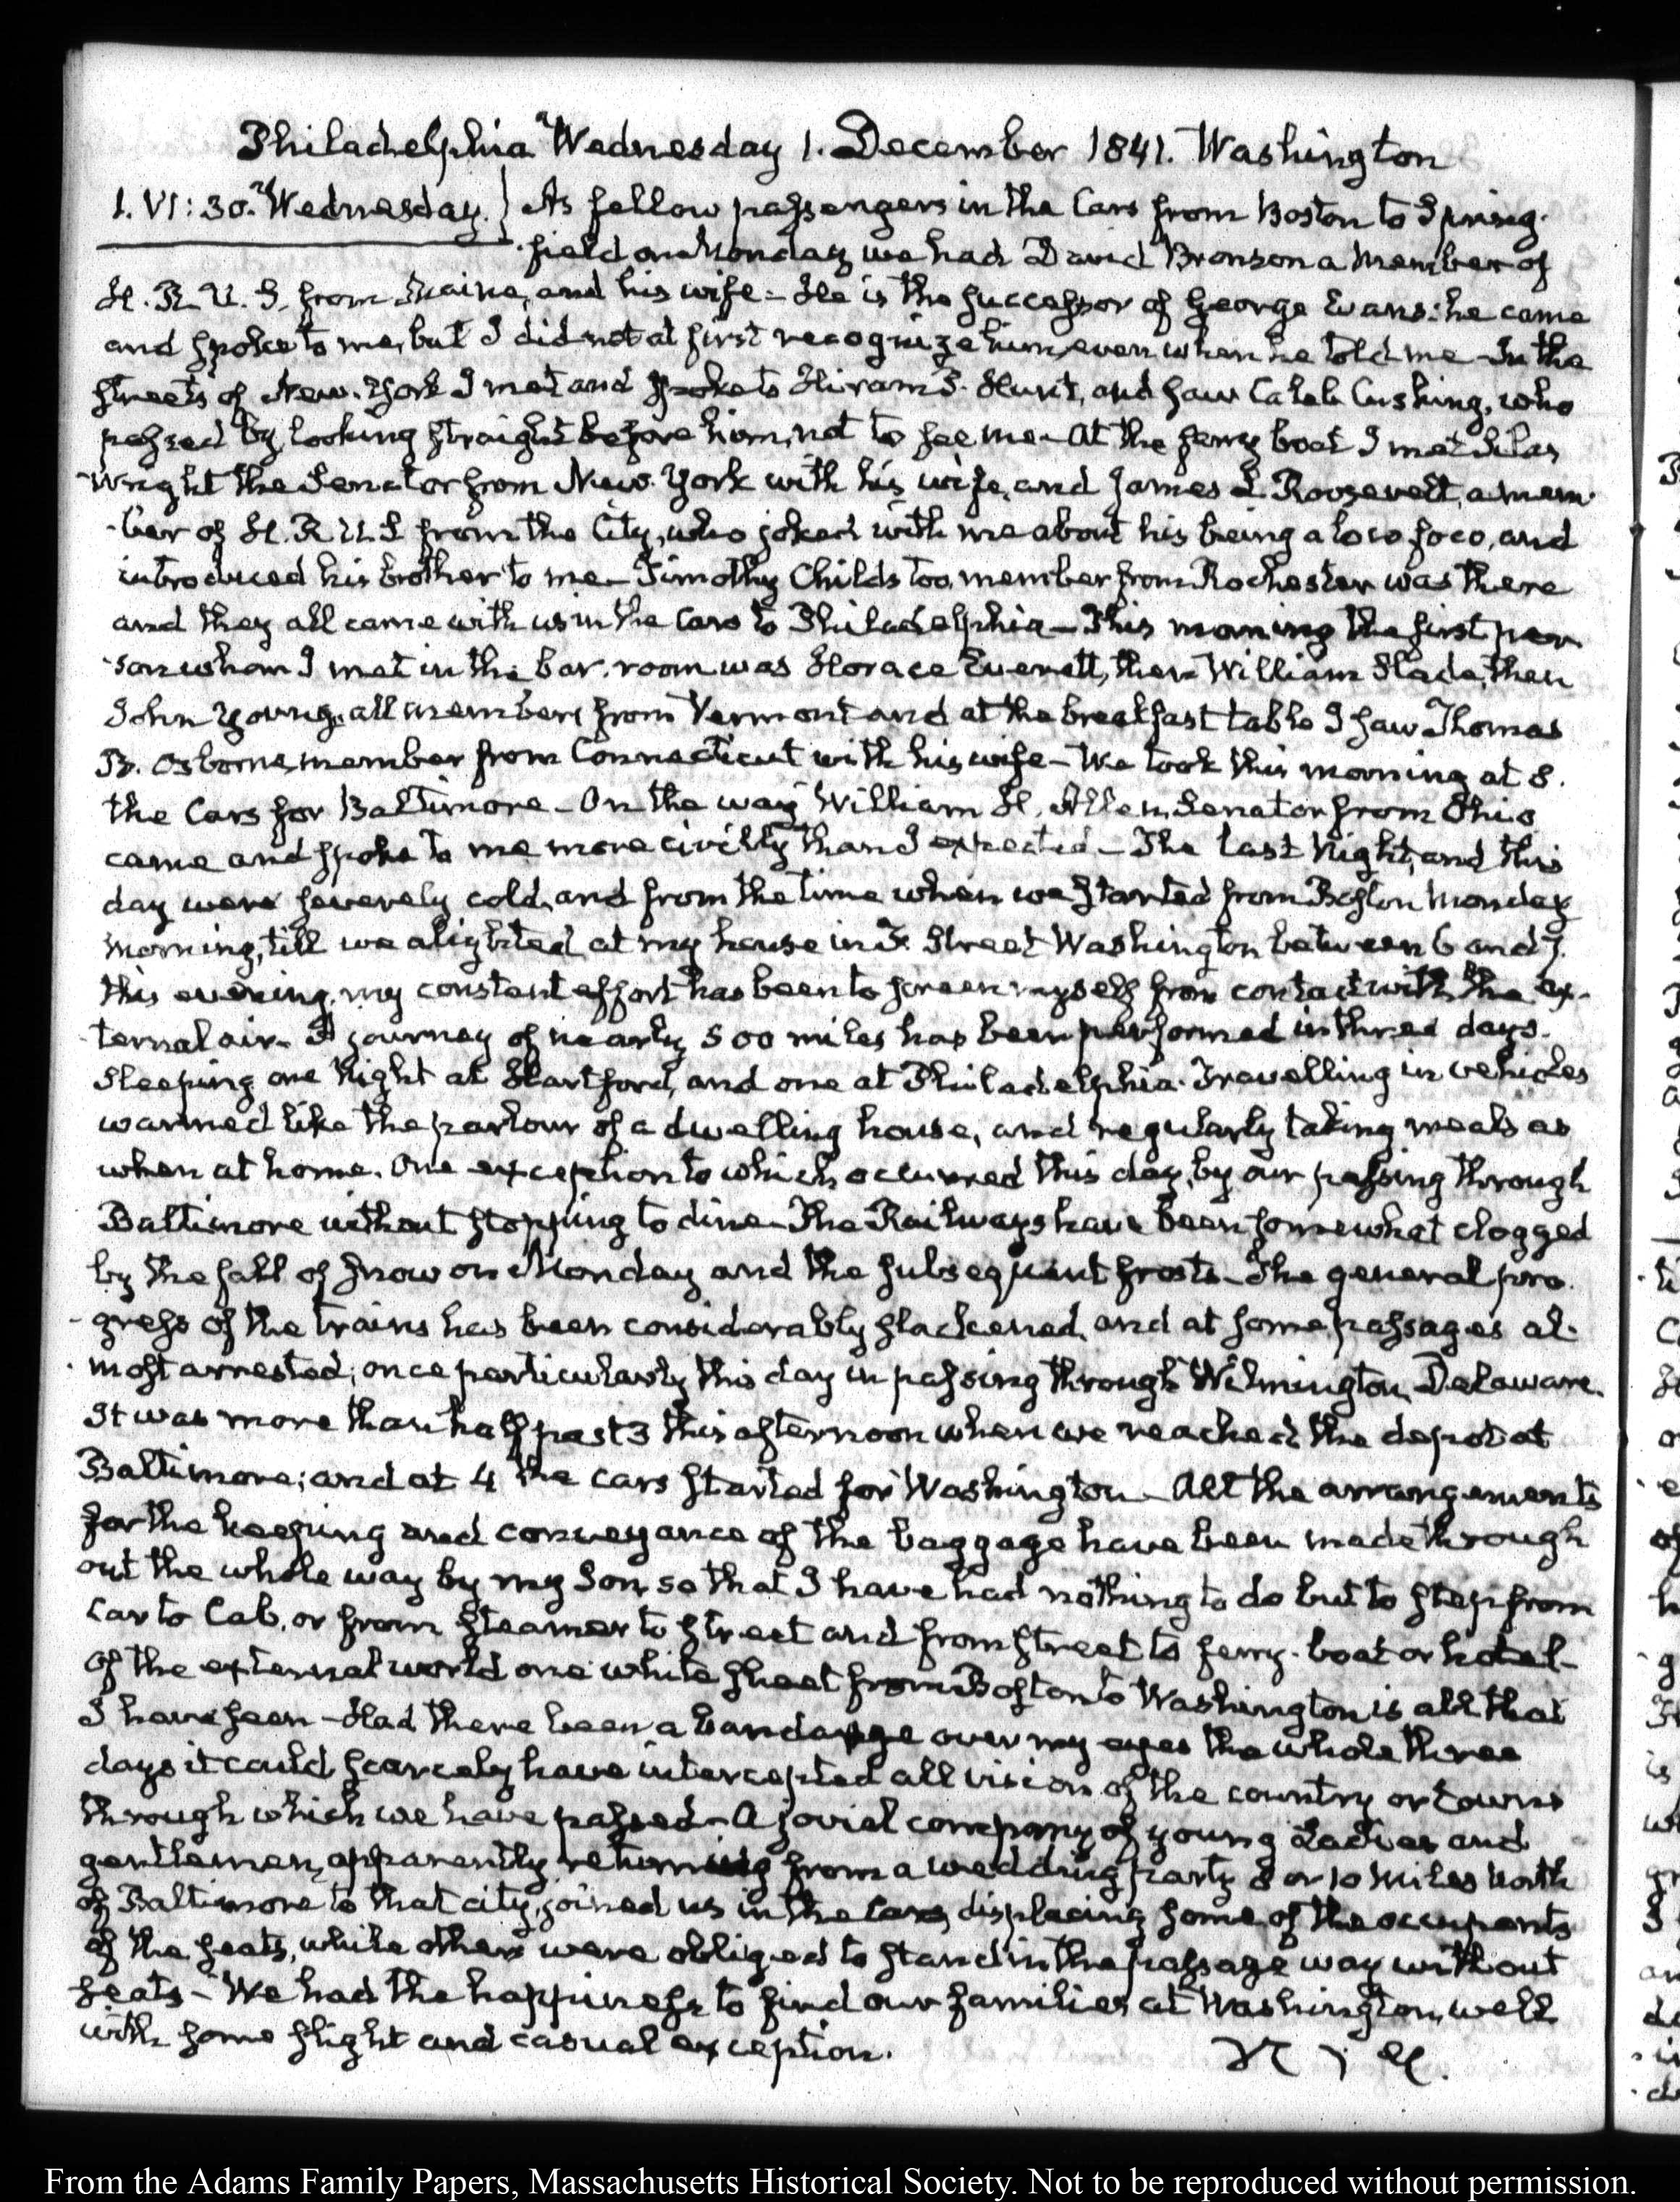 Philadelphia Wednesday 1. December 1841. Washington
1. VI: 30. Wednesday. } As fellow passengers in the Cars from Boston to Spring-
field on Monday we had David Bronson a Member of
H. R. U. S. from Maine, and his wife – He is the successor of George Evans: he came
and spoke to me, but I did not at first recognize him, even when he told me – In the
streets of New-York I met and spoke to Hiram P. Hunt, and saw Caleb Cushing, who
passed by, looking straight before him, not to see me – At the ferry boat I met Silas
Wright the Senator from New-York with his wife, and James I. Roosevelt, a mem-
-ber of H. R. U. S from the City, who joked with me about his being a loco foco, and
introduced his brother to me – Timothy Childs too, member from Rochester was there
and they all came with us in the Cars to Philadelphia – This morning the first per
-son whom I met in the bar-room was Horace Everett, then William Slade, then
John Young, all members from Vermont and at the breakfast table I saw Thomas
B. Osborne, member from Connecticut with his wife – We took this morning at 8.
the Cars for Baltimore – On the way William H. Allen, Senator from Ohio
came and spoke to me more civilly than I expected – The last Night, and this
day were severely cold, and from the time when we started from Boston Monday
morning, till we alighted at my house in F. Street Washington between 6 and 7.
this evening, my constant effort has been to screen myself from contact with the ex-
-ternal air – A journey of nearly 500 miles has been performed in three days.
Sleeping one Night at Hartford, and one at Philadelphia. Travelling in vehicles
warmed like the parlour of a dwelling house, and regularly taking meals as
when at home. One exception to which occurred this day, by our passing through
Baltimore without stopping to dine – The Railways have been somewhat clogged
by the fall of snow on Monday and the subsequent frosts – The general pro
-gress of the trains has been considerably slackened, and at some passages al-
-most arrested; once particularly this day in passing through Wilmington, Delaware.
It was more than half past 3 this afternoon when we reached the depot at
Baltimore; and at 4 the cars started for Washington – All the arrangements
for the keeping and conveyance of the baggage have been made through
out the whole way by my Son, so that I have had nothing to do but to step from
Car to Cab, or from steamer to street and from street to ferry-boat or hotel –
Of the external world one white sheet from Boston to Washington is all that
I have seen – Had there been a bandage over my eyes the whole three
days it could scarcely have intercepted all vision of the country or towns
through which we have passed – A jovial company of young Ladies and
gentlemen, apparently returning from a wedding party 8 or 10 Miles North
of Baltimore to that city, joined us in the Cars, displacing some of the occupants
of the seats, while others were obliged to stand in the passage way without
seats – We had the happiness to find our families at Washington, well
with some slight and casual exception.
From the Adams Family Papers, Massachusetts Historical Society. Not to be reproduced without permission.